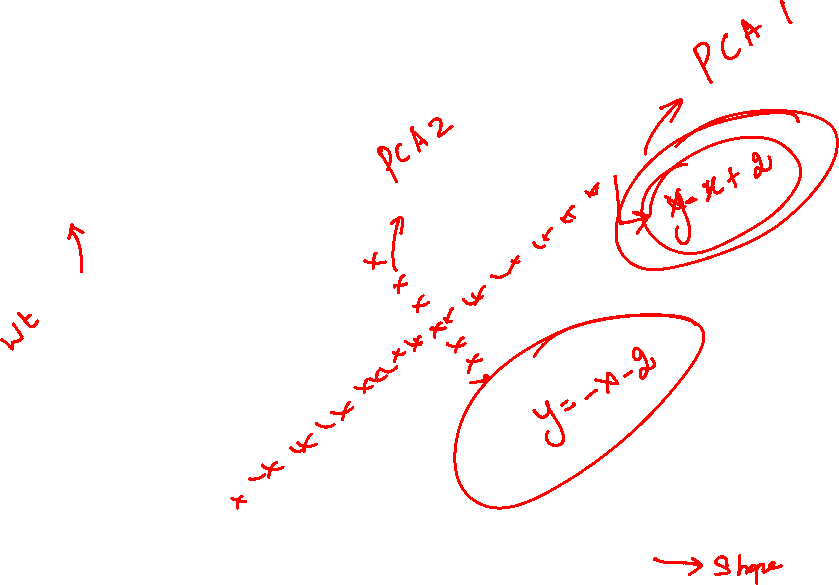 PCA 1
PCA2
y=x+2
Wt
y=-x-2
Shape